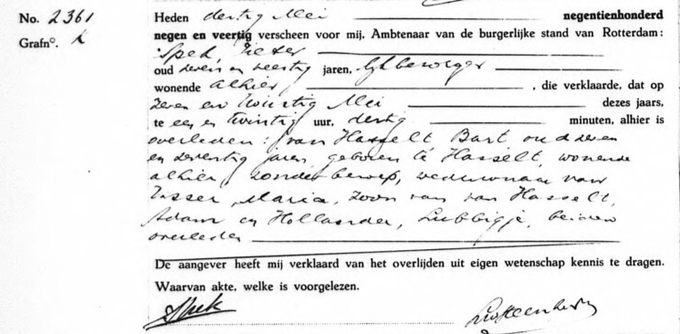 No. 2361 Heden dertig Mei negentienhonderd
Grafno. negen en veertig verscheen voor mij, Ambtenaar van de burgerlijke stand van Rotterdam:
Spek, Pieter
oud zeven en zestig jaren, lijkbezorger
wonende alhier, die verklaarde, dat op
zeven en twintig Mei dezes jaars,
te een en twintig uur, dertig minuten, alhier is
overleden: van Hasselt, Bart oud zeven
en zeventig jaren, geboren te Hasselt, wonende
alhier, zonder beroep, weduwnaar van
Visser, Maria, zoon van van Hasselt,
Adam en Hollander, Lubbigje, beiden
overleden
De aangever heeft mij verklaard van het overlijden uit eigen wetenschap kennis te dragen.
Waarvan akte, welke is voorgelezen.
Spek